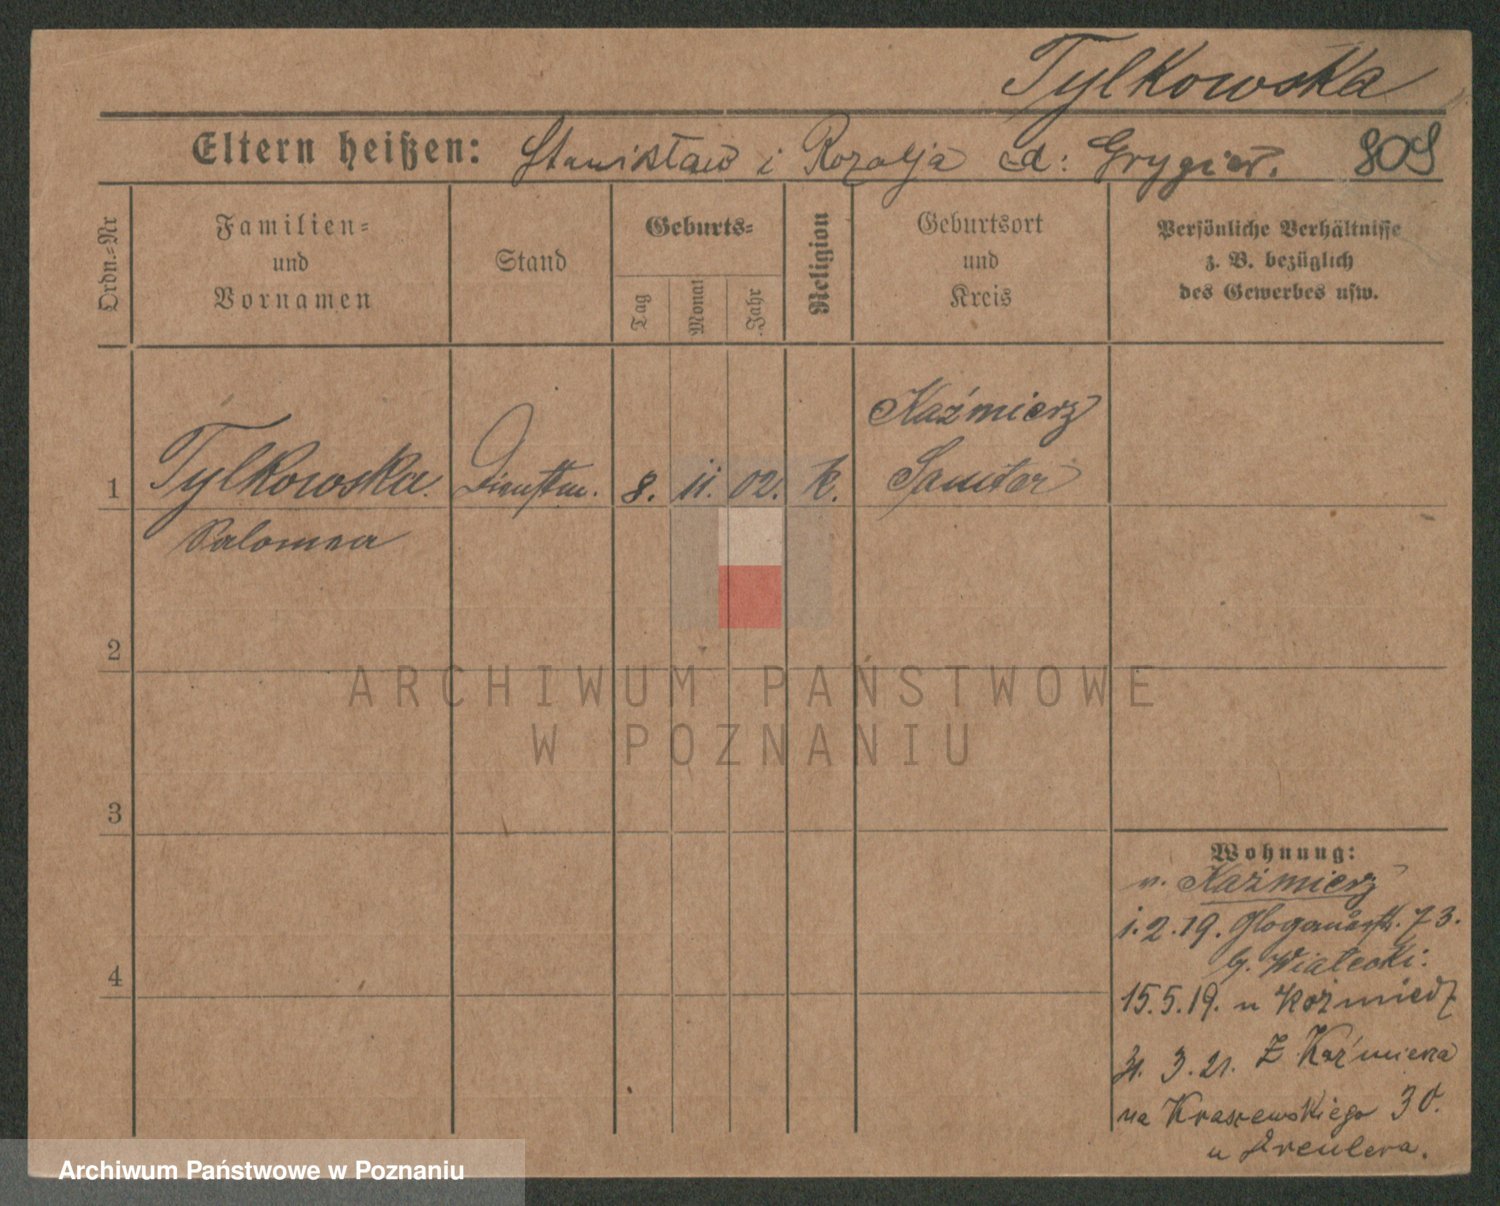 Tylkowska
Eltern heißen: Stanisław i Rozalja cd: Grygier. 809
Ordn.-Nr
Familien-
und
Vornamen
Stand
Geburts-
Tag
Monat
Jahr
Religion
Geburtsort
und
Kreis
Persönliche Verhältnisse
z. B. bezüglich
des Gewerbes usw.
Kaźmierz
1 Tylkowska. Dienstm. 8. 11. 02. k. Samter
Salomea
2
ARCHIWUM PAŃSTWOWE
W POZNANIU
3
Wohnung:
v. Kaźmierz
1.2.19. Glogauerstr. 73.
b. Wiatecki.
15.5.19. n Kaźmierz
31. 3. 21. Z Kaźmierza
na Kraszewskiego 30.
u
4
Archiwum Państwowe w Poznaniu